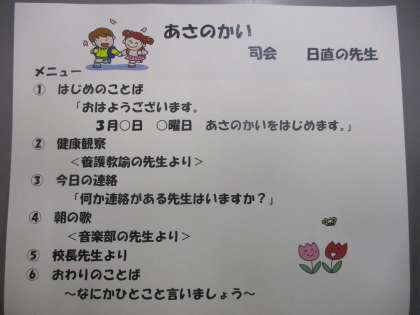 あさのかい
司会　日直の先生
メニュー
① はじめのことば
「おはようございます。
３月○日　○曜日　あさのかいをはじめます。」
② 健康観察
＜養護教諭の先生より＞
③ 今日の連絡
「何か連絡がある先生はいますか？」
④ 朝の歌
＜音楽部の先生より＞
⑤ 校長先生より
⑥ おわりのことば
～なにかひとこと言いましょう～